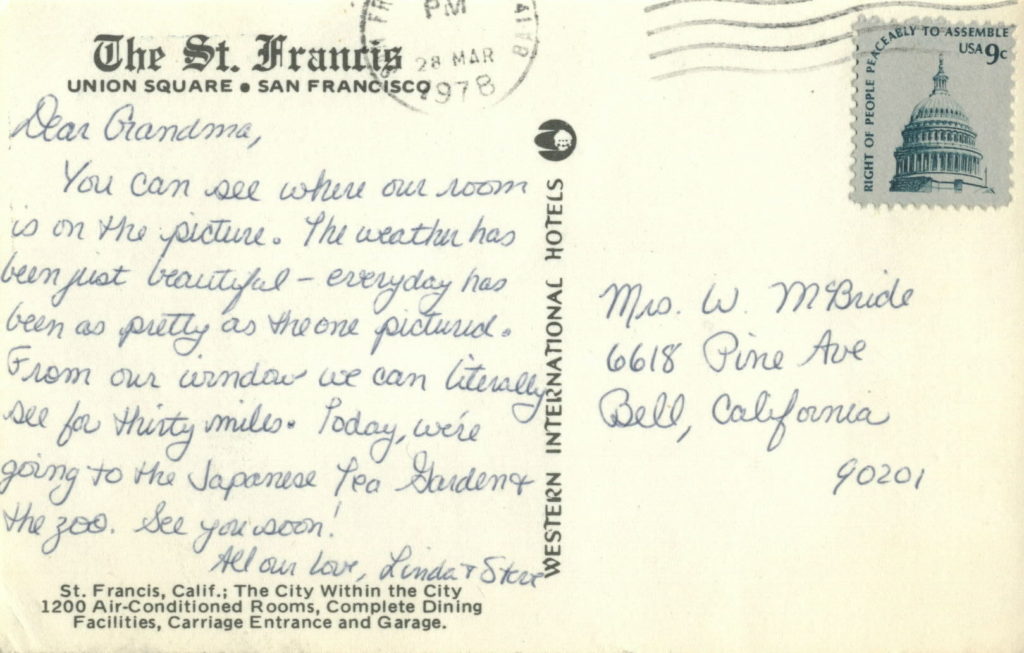 The St. Francis
UNION SQUARE • SAN FRANCISCO
PM
28 MAR
1978
RIGHT OF PEOPLE PEACEABLY TO ASSEMBLE
USA 9c
Dear Grandma,
You can see where our room
is on the picture. The weather has
been just beautiful – everyday has
been as pretty as the one pictured.
From our window we can literally
see for thirty miles. Today, we're
going to the Japanese Tea Garden &
the zoo. See you soon!
All our love, Linda & Steve
St. Francis, Calif.; The City Within the City
1200 Air-Conditioned Rooms, Complete Dining
Facilities, Carriage Entrance and Garage.
WESTERN INTERNATIONAL HOTELS
Mrs. W. McBride
6618 Pine Ave
Bell, California
90201